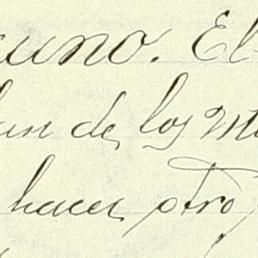 uno. El
de los
hacer otro